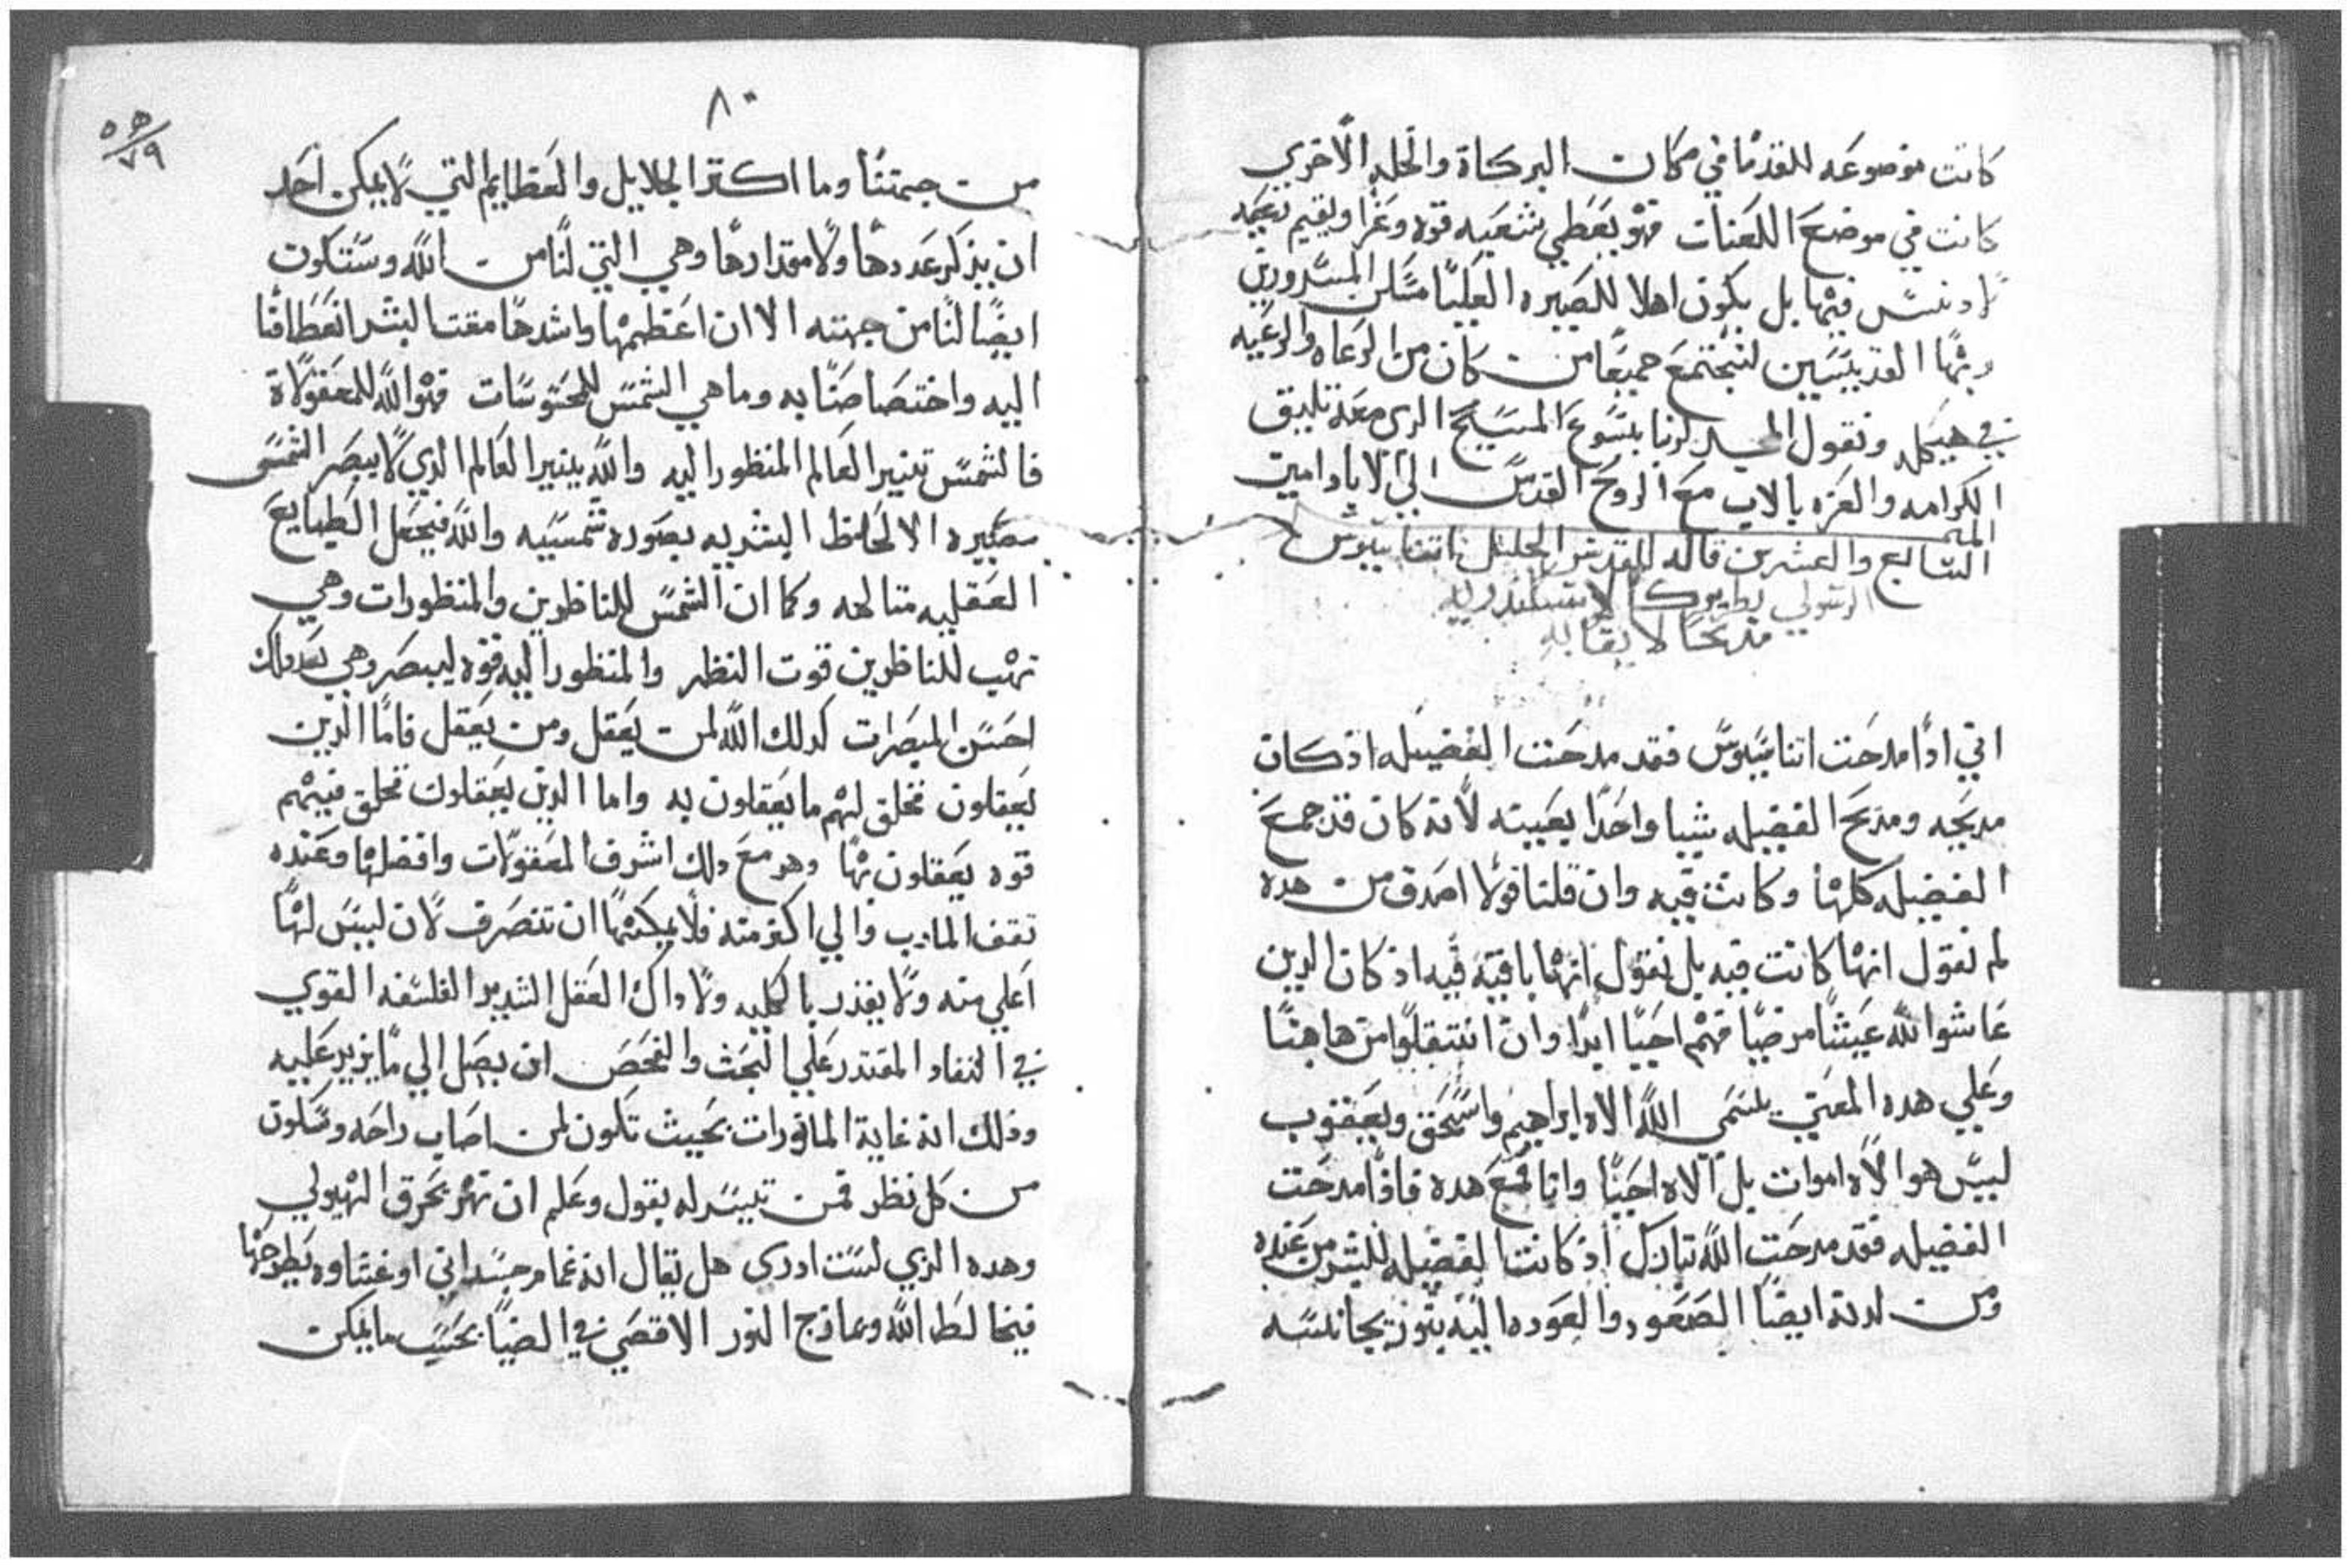 كانت موضوعه للقدما في مكان البركاة والحله الاخري
كانت في موضع اللعنات فهو يعطي شعبه قوه وعزا ويقيم رعيه
فيها بل يكون اهلا للصيره العليا مسكن المسرورين
وبها القديسين لنجتمع جميعا من كان من الرعاه والرعيه
في هيكله ونقول المجد لربنا يسوع المسيح الدي معه تليق
الكرامه والعزه بالاب مع الروح القدس الي الاباد امين
الميمر
السابع والعشرين قاله للقديس الجليل اتناسيوس
الرسولي بطريرك الاسكندريه
مديحا لا يقا به
اني ادا مدحت اتناسيوس فقد مدحت الفضيله اذ كان
مديحه ومديح الفضيله شيا واحدا بعينه لانه كان قد جمع
الفضيله كلها وكانت فيه وان قلنا قولا اصدق من هده
لم نقول انها كانت فيه بل نقول انها باقيه فيه اذ كان الدين
عاشوا لله عيشا مرضيا فهم احيا ابدا وان انتقلوا من هاهنا
وعلي هده المعني يسمي الله الاه ابراهيم واسحق ويعقوب
ليس هو الاه اموات بل الاه احيا وانا فمع هده فاذا مدحت
الفضيله فقد مدحت الله تبارك اذ كانت الفضيله للبشر من عنده
ومن لدنه ايضا الصعود والعوده اليه بنور يجانسه
٨٠
٧٩
من جهتنا وما اكتر الجلايل والعظايم التي لا يمكن احد
ان يذكر عددها ولا مقدارها وهي التي لنا من الله وستكون
ايضا لنا من جهته الا ان اعظمها واشدها مقتا لبشر انعطافنا
اليه واختصاصنا به وما هي الشمس للمحسوسات فهو الله للمعقولاة
فالشمس تنير العالم المنظور اليه والله ينير العالم الدي لا يبصر الشمس
مصيره الالحاظ البشريه بصوره شمسيه والله فيجعل الطبايع
العقليه متالهه وكما ان الشمس للناظرين والمنظورات وهي
تهب للناظرين قوت النظر والمنظور اليه قوه ليبصر وهي بعد دلك
احسن المبصرات كدلك الله لمن يعقل ومن يعقل فاما الدين
يعقلون فخلق لهم ما يعقلون به واما الدين يعقلون فخلق فيهم
قوه يعقلون بها وهو مع دلك اشرف المعقولات وافضلها وعنده
تقف المارب والي اكثر منه فلا يمكنها ان تتصرف لان ليس لها
اعلي منه ولا يقدر بالكليه ولا داك العقل الشديد الفلسفه القوي
في النفاد المقتدر علي البحث والفحص ان يصل الي ما يزيد عليه
وذلك انه غاية الماثورات بحيث تكون لمن اصاب راحه وسكون
من كل نظر فمن تيسر له يقول وعلم ان تهر بحرق الهيولي
وهده الذي لست ادري هل يقال انه غمام جسداني او غشاوه يطرحها
فيخالط الله ويمازج النور الاقصي في الضيا بحسب ما يمكن